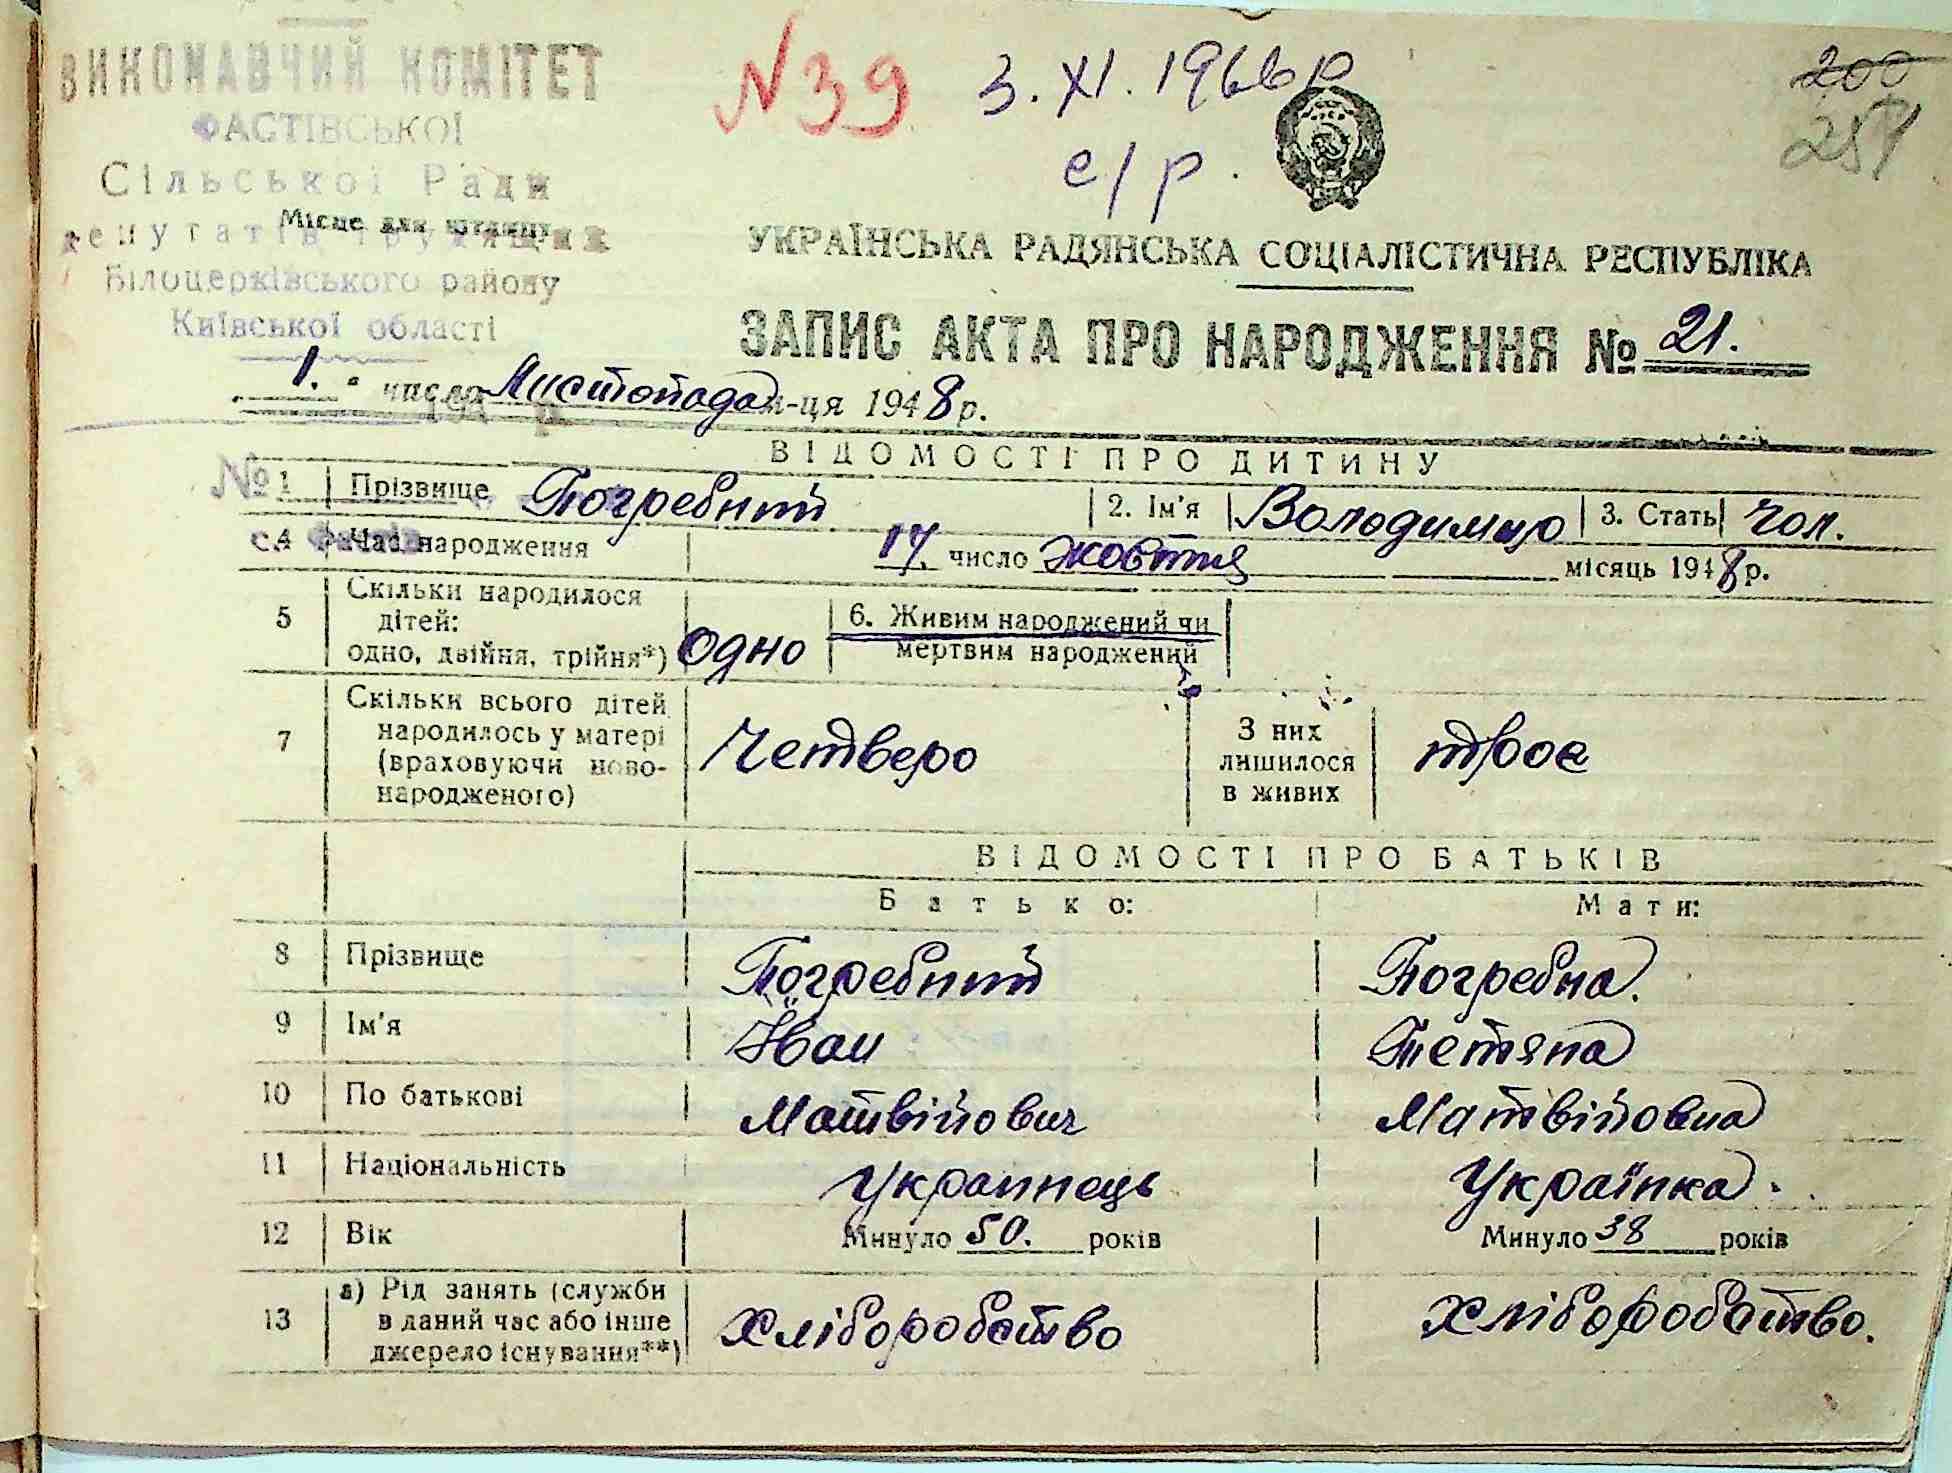 ВИКОНАВЧИЙ КОМІТЕТ
ФАСТІВСЬКОЇ
Сільської Ради
депутатів трудящих
Місце для штампу
Білоцерківського району
Київської області
№39 3.XI.1966р
с/р.
200
251
УКРАЇНСЬКА РАДЯНСЬКА СОЦІАЛІСТИЧНА РЕСПУБЛІКА
ЗАПИС АКТА ПРО НАРОДЖЕННЯ № 21.
1. числа Листопада м-ця 1948 р.
ВІДОМОСТІ ПРО ДИТИНУ
№ 1 Прізвище Погребний 2. Ім'я Володимир 3. Стать чол.
с. Фастів
4 Час народження 17. число жовтня місяць 1948 р.
5 Скільки народилося дітей: одно, двійня, трійня*) одно 6. Живим народжений чи мертвим народжений
7 Скільки всього дітей народилось у матері (враховуючи ново-народженого) Четверо З них лишилося в живих троє
ВІДОМОСТІ ПРО БАТЬКІВ
Батько: Мати:
8 Прізвище Погребний Погребна.
9 Ім'я Іван Тетяна
10 По батькові Матвійович Матвійовна
11 Національність Украинець Українка.
12 Вік Минуло 50. років Минуло 38 років
13 а) Рід занять (служби в даний час або інше джерело існування**) Хліборобство Хліборобство.